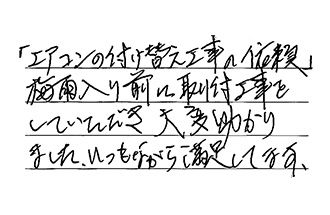 「エアコンの付け替え工事の依頼」
梅雨入り前に取り付工事を
していただき 大変助かり
ました。いつもながら満足してます。